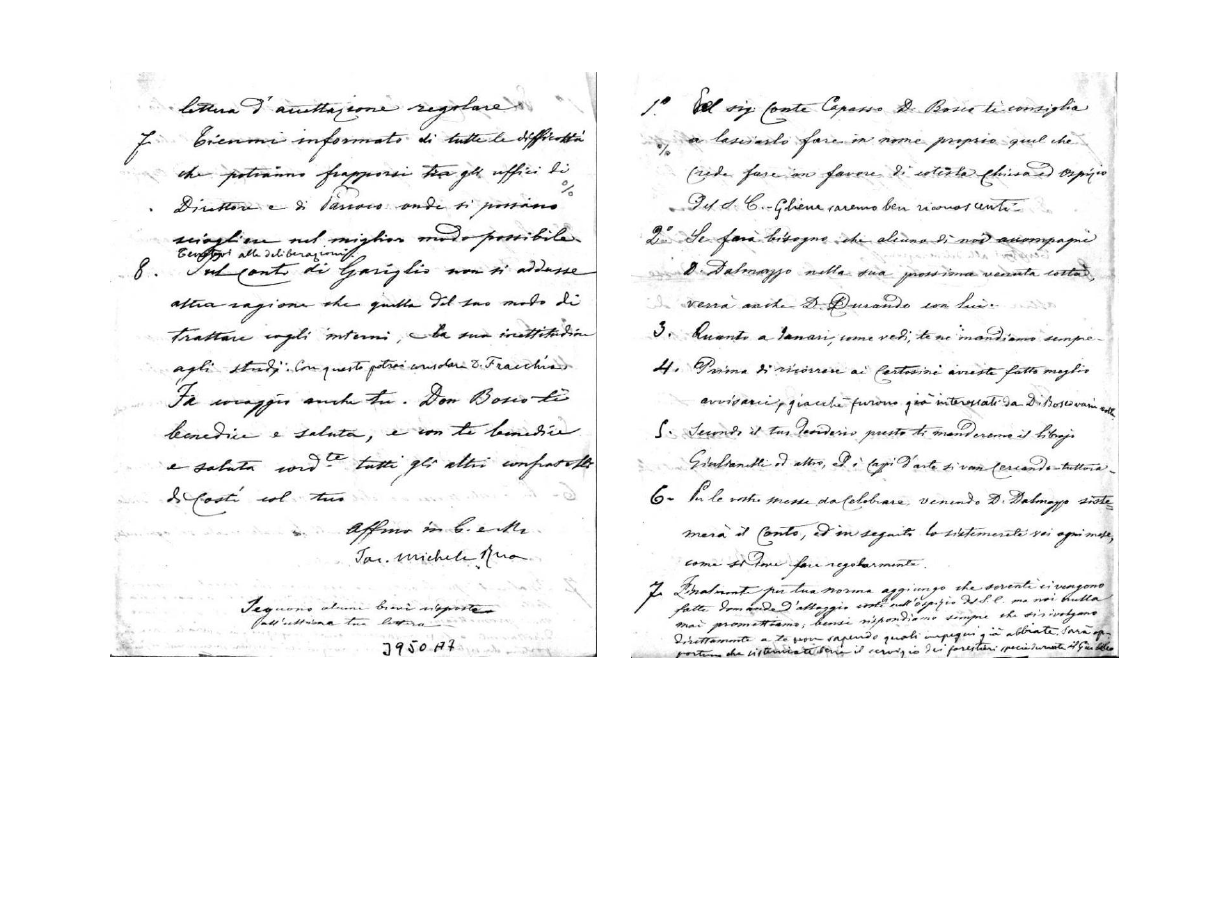 lettera d'accettazione regolare
7. Tienmi informato di tutte le difficoltà
che potranno frapporsi tra gli uffici di
Direttore e di Parroco onde si possano %
sciogliere nel miglior modo possibile.
alle deliberazioni
8. Sul conto di Gariglio non si addusse
altra ragione che quella del suo modo di
trattare cogli interni, e la sua inattitudine
agli studj. Con questo potrai consolare D. Fracchia.
Fa coraggio anche tu. Don Bosco ti
benedice e saluta, e con te benedice
e saluta cord.te tutti gli altri confratelli
di costì col tuo
Affmo in G. e M.
Sac. Michele Rua
Seguono alcune brevi risposte
all'ultima tua lettera
3950 A7
1º Al sig. Conte Capasso D. Bosco ti consiglia
% a lasciarlo fare in nome proprio quel che
crede fare in favore di cotesta Chiesa ed Ospizio
del S. C. - Gliene saremo ben riconoscenti -
2º Se farà bisogno che alcuno di noi accompagni
D. Dalmazzo nella sua prossima venuta costà,
verrà anche D. Durando con lui.
3. Quanto a danari, come vedi, te ne mandiamo sempre -
4. Prima di ricorrere ai Certosini avreste fatto meglio
avvisarci, giacchè furono già interessati da D. Bosco varie volte
5. Secondo il tuo desiderio presto ti manderemo il librajo
Giulianelli ed altro, ed i capi d'arte si van cercando tuttora -
6. Per le vostre messe da celebrare venendo D. Dalmazzo siste=
merà il conto, ed in seguito lo sistemerete voi ogni mese,
come si deve fare regolarmente.
7. Finalmente per tua norma aggiungo che sovente ci vengono
fatte domande d'alloggio costì nell'Ospizio del S. C. ma noi nulla
mai promettiamo; bensì rispondiamo sempre che si rivolgano
direttamente a te non sapendo quali impegni già abbiate. Sarà op-
portuno che sistemiate bene il servizio dei forestieri specialmente il Giubileo